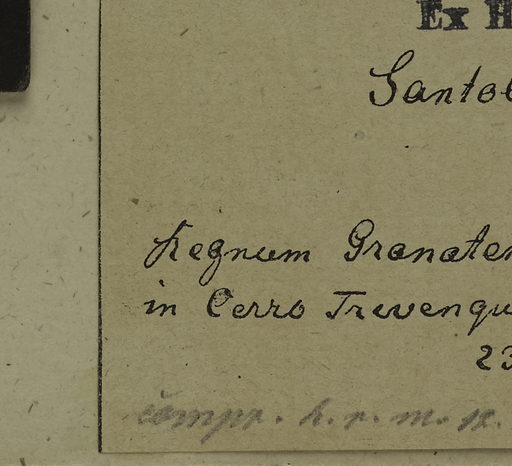 Ex H
Santol
Regnum Granaten
in Cerro Trevenqu
23
compr. h. r. m. p.